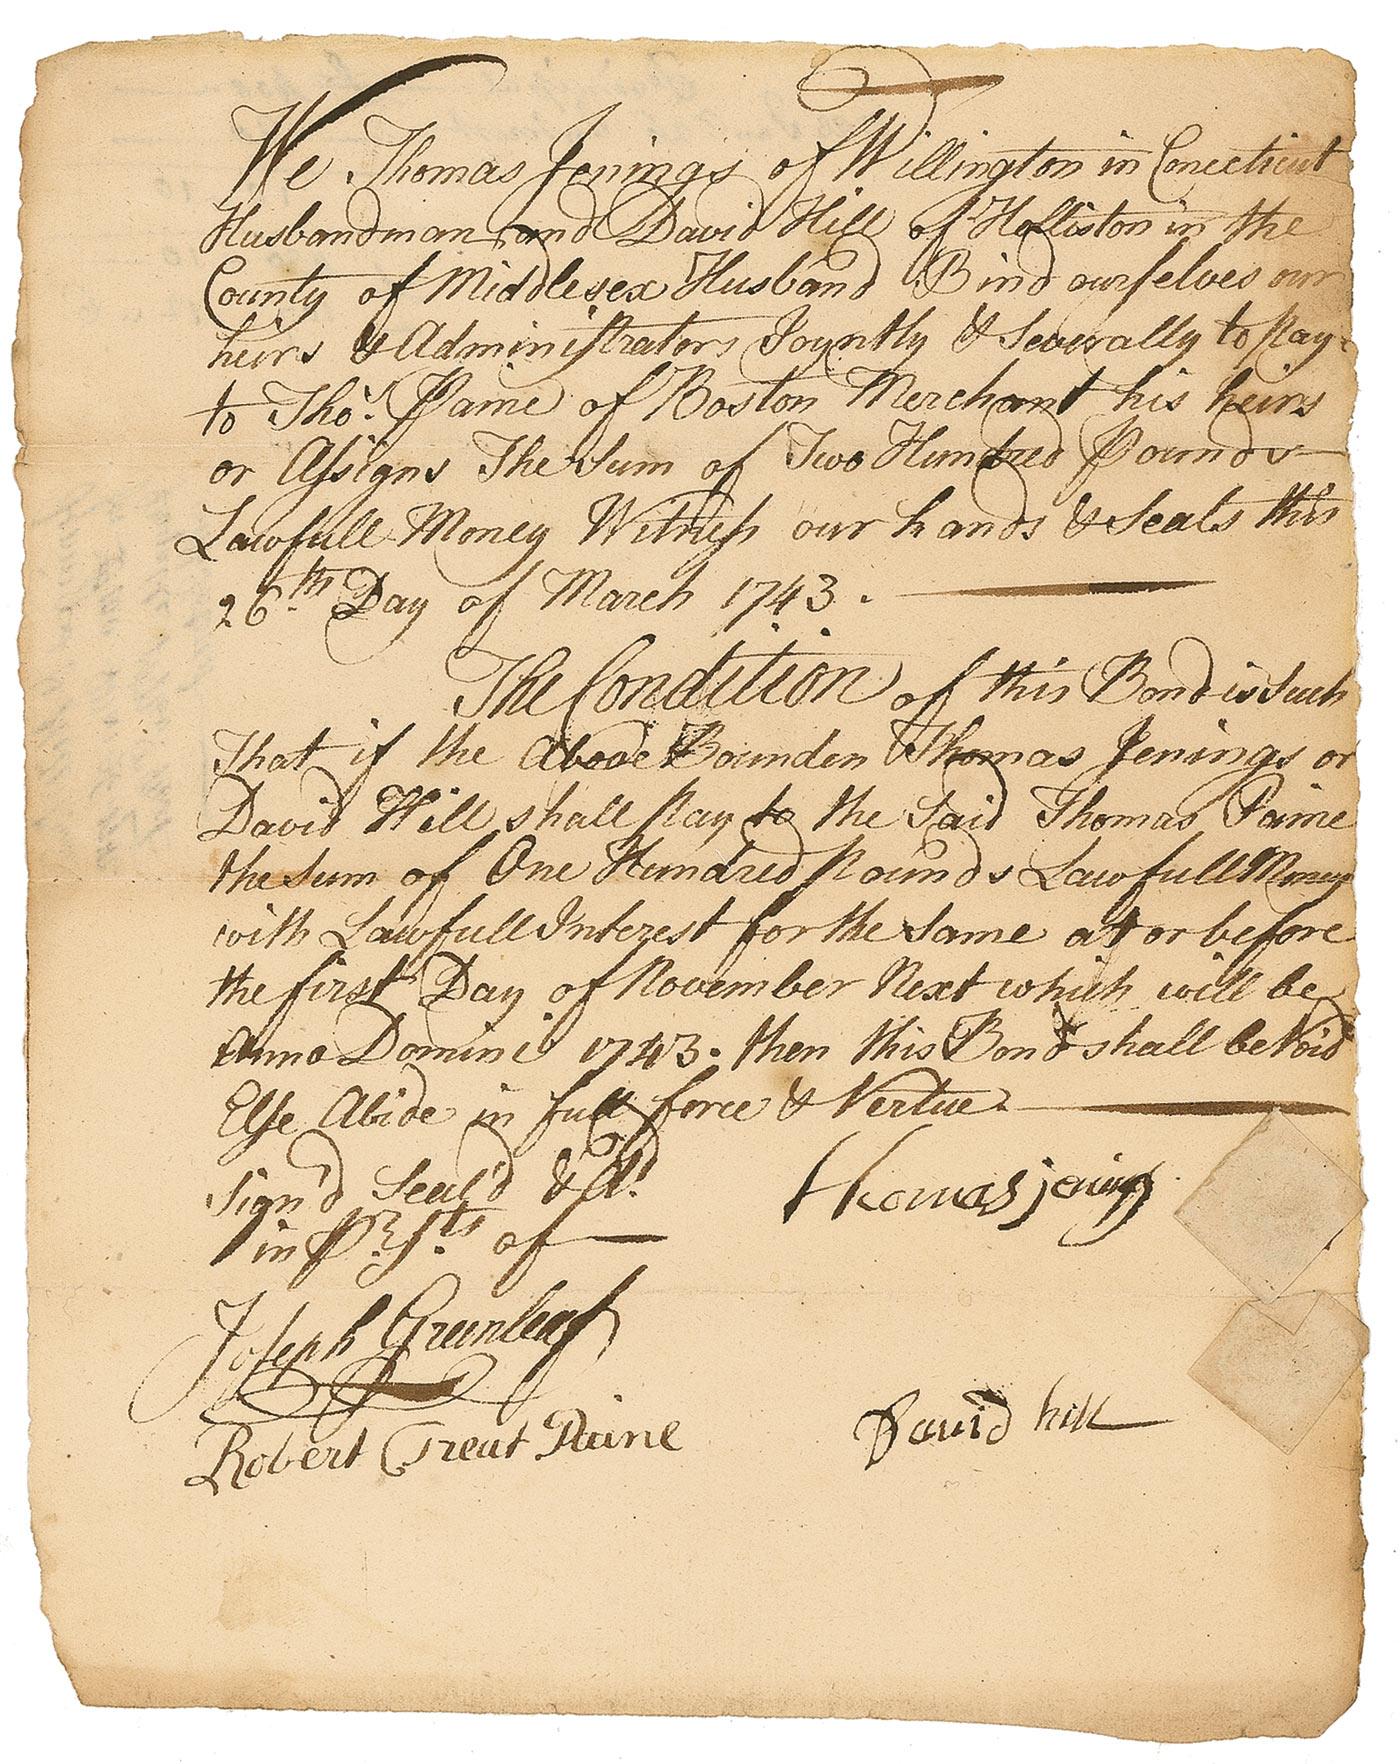 We Thomas Jenings of Willington in Conecticut
Husbandman and David Hill of Holliston in the
County of Middlesex Husband Bind ourselves our
heirs & Administrators Joyntly & Severally to Pay
to Tho.s Paine of Boston Merchant his heirs
or Assigns The Sum of Two Hundred Pounds
Lawfull Money Witness our hands & Seals this
26.th Day of March 1743.
The Condition of this Bond is Such
That if the Above Bounden Thomas Jenings or
David Hill shall Pay to the Said Thomas Paine
the Sum of One Hundred Pounds Lawfull Money
with Lawfull Interest for the Same at or before
the first Day of November Next which will be
Anno Domini 1743. then this Bond shall be Void
Else Abide in full force & Vertue
Sign'd Seal'd & dd
in Pr.sts of
Thomas jenings
Joseph Greenleaf
Robert Treat Paine
David hill